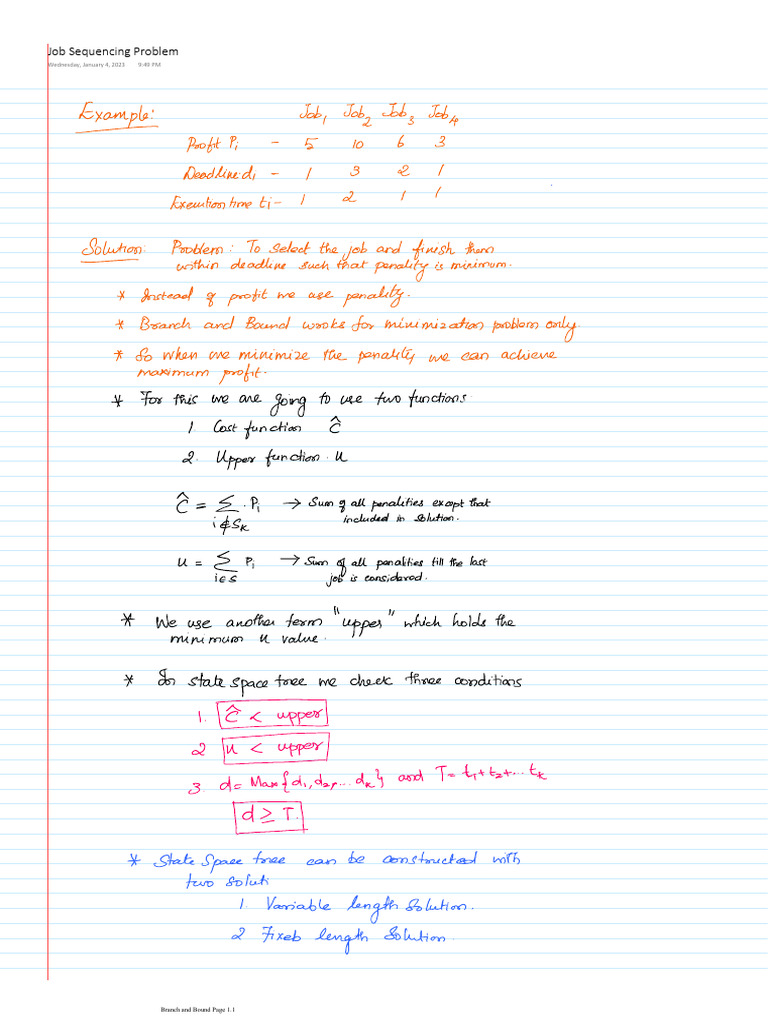 Job Sequencing Problem
Wednesday, January 4, 2023 9:49 PM
Example: Job1 Job2 Job3 Job4
Profit Pi - 5 10 6 3
Deadline:di - 1 3 2 1
Exeution time ti - 1 2 1 1
Solution: Problem: To select the job and finish them
within deadline such that penality is minimum.
* Instead of profit we use penality.
* Branch and Bound works for minimization problem only.
* So when we minimize the penality we can achieve
maximum profit.
* For this we are going to use two functions
1. Cost function Ĉ
2. Upper function. u
Ĉ = ∑ Pi → Sum of all penalities except that
i∉Sk included in solution.
u = ∑ Pi → Sum of all penalities till the last
i∈S job is considered.
* We use another term "upper" which holds the
minimum u value.
* In state space tree we check three conditions
1. Ĉ < upper
2 u < upper
3. d= Max{d1,d2,...dk} and T= t1+t2+...tk
d ≥ T.
* State space tree can be constructed with
two soluti
1. Variable length solution.
2 Fixed length solution.
Branch and Bound Page 1.1